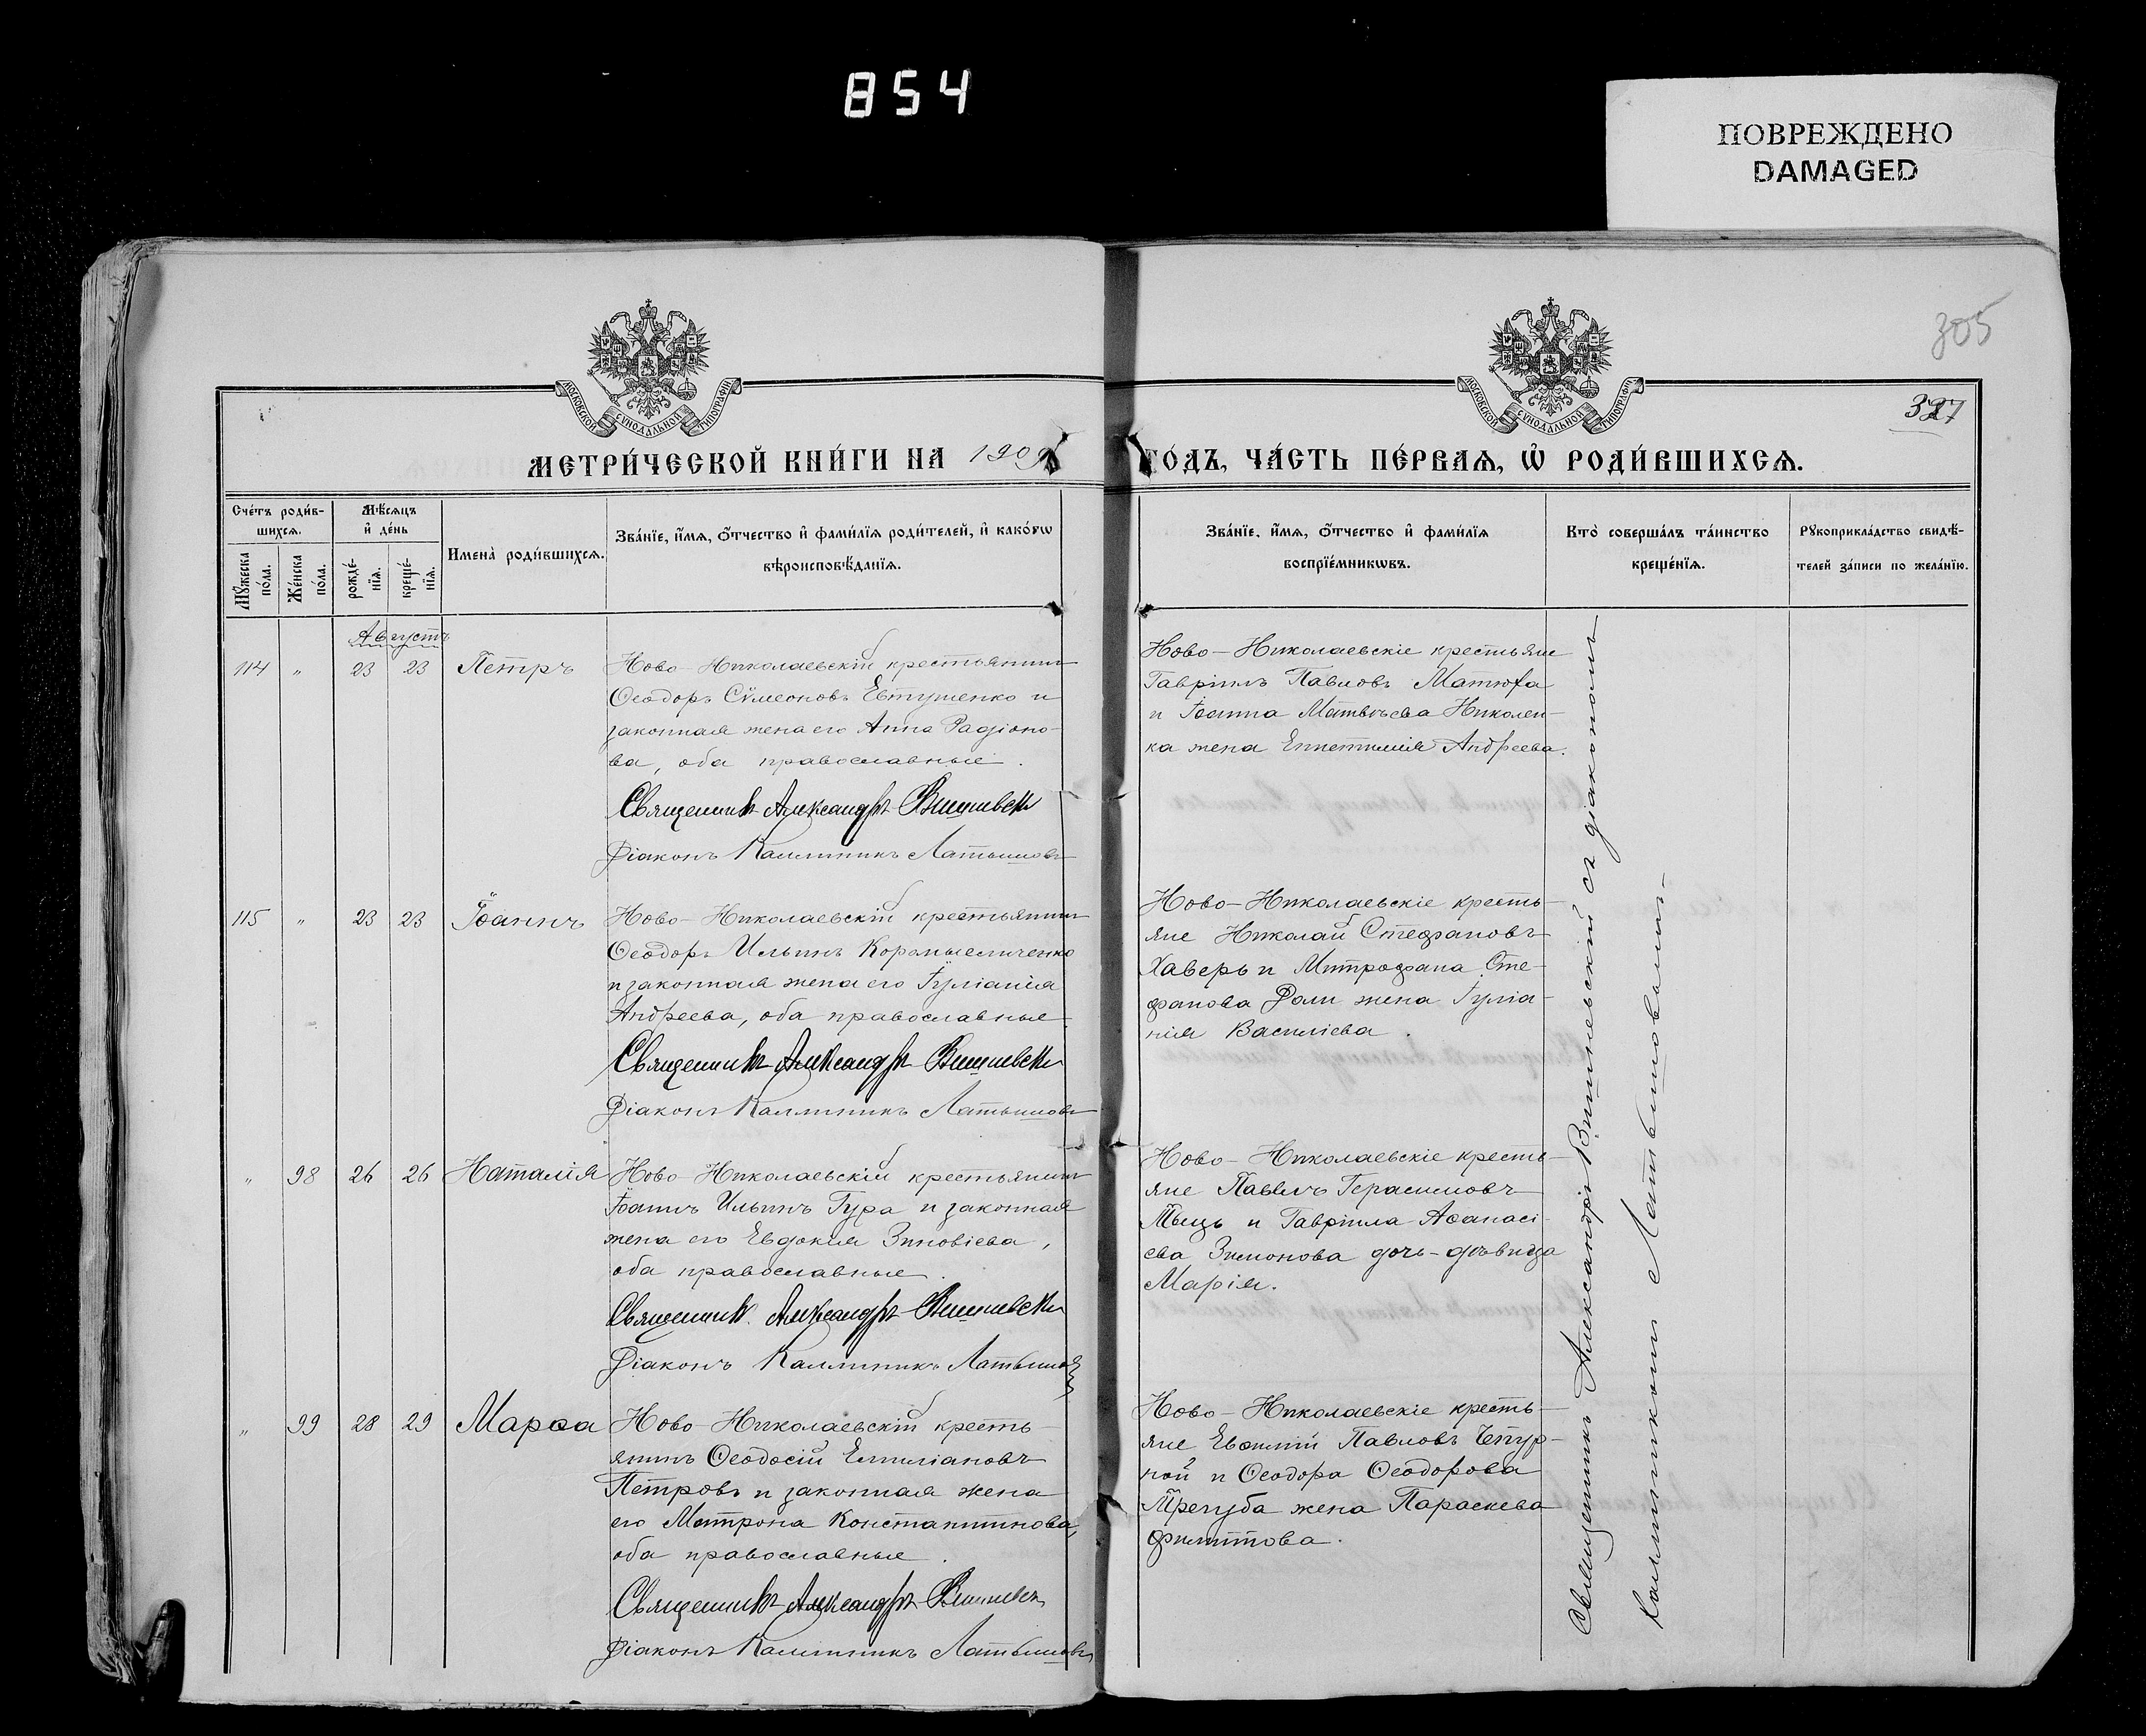 854
ПОВРЕЖДЕНО
DAMAGED
305
МОСКОВСКОЙ СѴНОДАЛЬНОЙ ТИПОГРАФІИ
МОСКОВСКОЙ СѴНОДАЛЬНОЙ ТИПОГРАФІИ
327
МЕТРИ́ЧЕСКОЙ КНИ́ГИ НА 1909
ГО́ДЪ, ЧА́СТЬ ПЕ́РВАѦ, Ѡ҆ РОДИ́ВШИХСѦ.
Сче́тъ роди́в-
шихсѧ.
Мѣ́сѧцъ
и҆ де́нь
Мꙋ́жеска
по́ла.
Же́нска
по́ла.
рожде́-
нїѧ.
креще́-
нїѧ.
Имена̀ роди́вшихсѧ.
Зва́нїе, и҆́мѧ, ѻ҆́тчество и҆ фами́лїѧ роди́телей, и҆ како́гѡ
вѣроисповѣ́данїѧ.
Зва́нїе, и҆́мѧ, ѻ҆́тчество и҆ фами́лїѧ
воспрїе́мникѡвъ.
Кто̀ соверша́лъ та́инство
креще́нїѧ.
Рꙋкоприкла́дство свидѣ́-
телей за́писи по жела́нїю.
Августъ
114 " 23 23 Петръ
Ново-Николаевскій крестьянинъ
Ѳеодоръ Сѵмеоновъ Евтушенко и
законная жена его Анна Радіоно-
ва, оба православные.
Священникъ Александръ Вишневскій
Діаконъ Каллиникъ Латышовъ
Ново-Николаевскіе крестьяне
Гавріилъ Павловъ Матюха
и Іоанна Матвѣева Николен-
ка жена Епистимія Андреева.
115 " 23 23 Іоаннъ
Ново-Николаевскій крестьянинъ
Ѳеодоръ Ильинъ Коромысличенко
и законная жена его Іуліанія
Андреева, оба православные
Священникъ Александръ Вишневскій
Діаконъ Каллиникъ Латышовъ
Ново-Николаевскіе кресть-
яне Николай Стефановъ
Хаверь и Митрофана Сте-
фанова Доли жена Іуліа-
нія Василіева.
" 98 26 26 Наталія
Ново-Николаевскій крестьянинъ
Іоаннъ Ильинъ Гура и законная
жена его Евдокія Зиновіева,
оба православные.
Священникъ Александръ Вишневскій
Діаконъ Каллиникъ Латышовъ
Ново-Николаевскіе кресть-
яне Павелъ Герасимовъ
и Гавріила Аѳанасі-
ева Зимонова дочь-дѣвица
Марія.
" 99 28 29 Марѳа
Ново-Николаевскій кресть-
янинъ Ѳеодосій Емиліановъ
Петровъ и законная жена
его Матрона Константинова,
оба православные.
Священникъ Александръ Вишневскій
Діаконъ Каллиникъ Латышовъ
Ново-Николаевскіе кресть-
яне Евѳимій Павловъ Чепур-
ной и Ѳеодора Ѳеодорова
Трегуба жена Параскева
Филиппова.
Священникъ Александръ Вишневскій съ діакономъ
Каллиникомъ Латышовымъ.